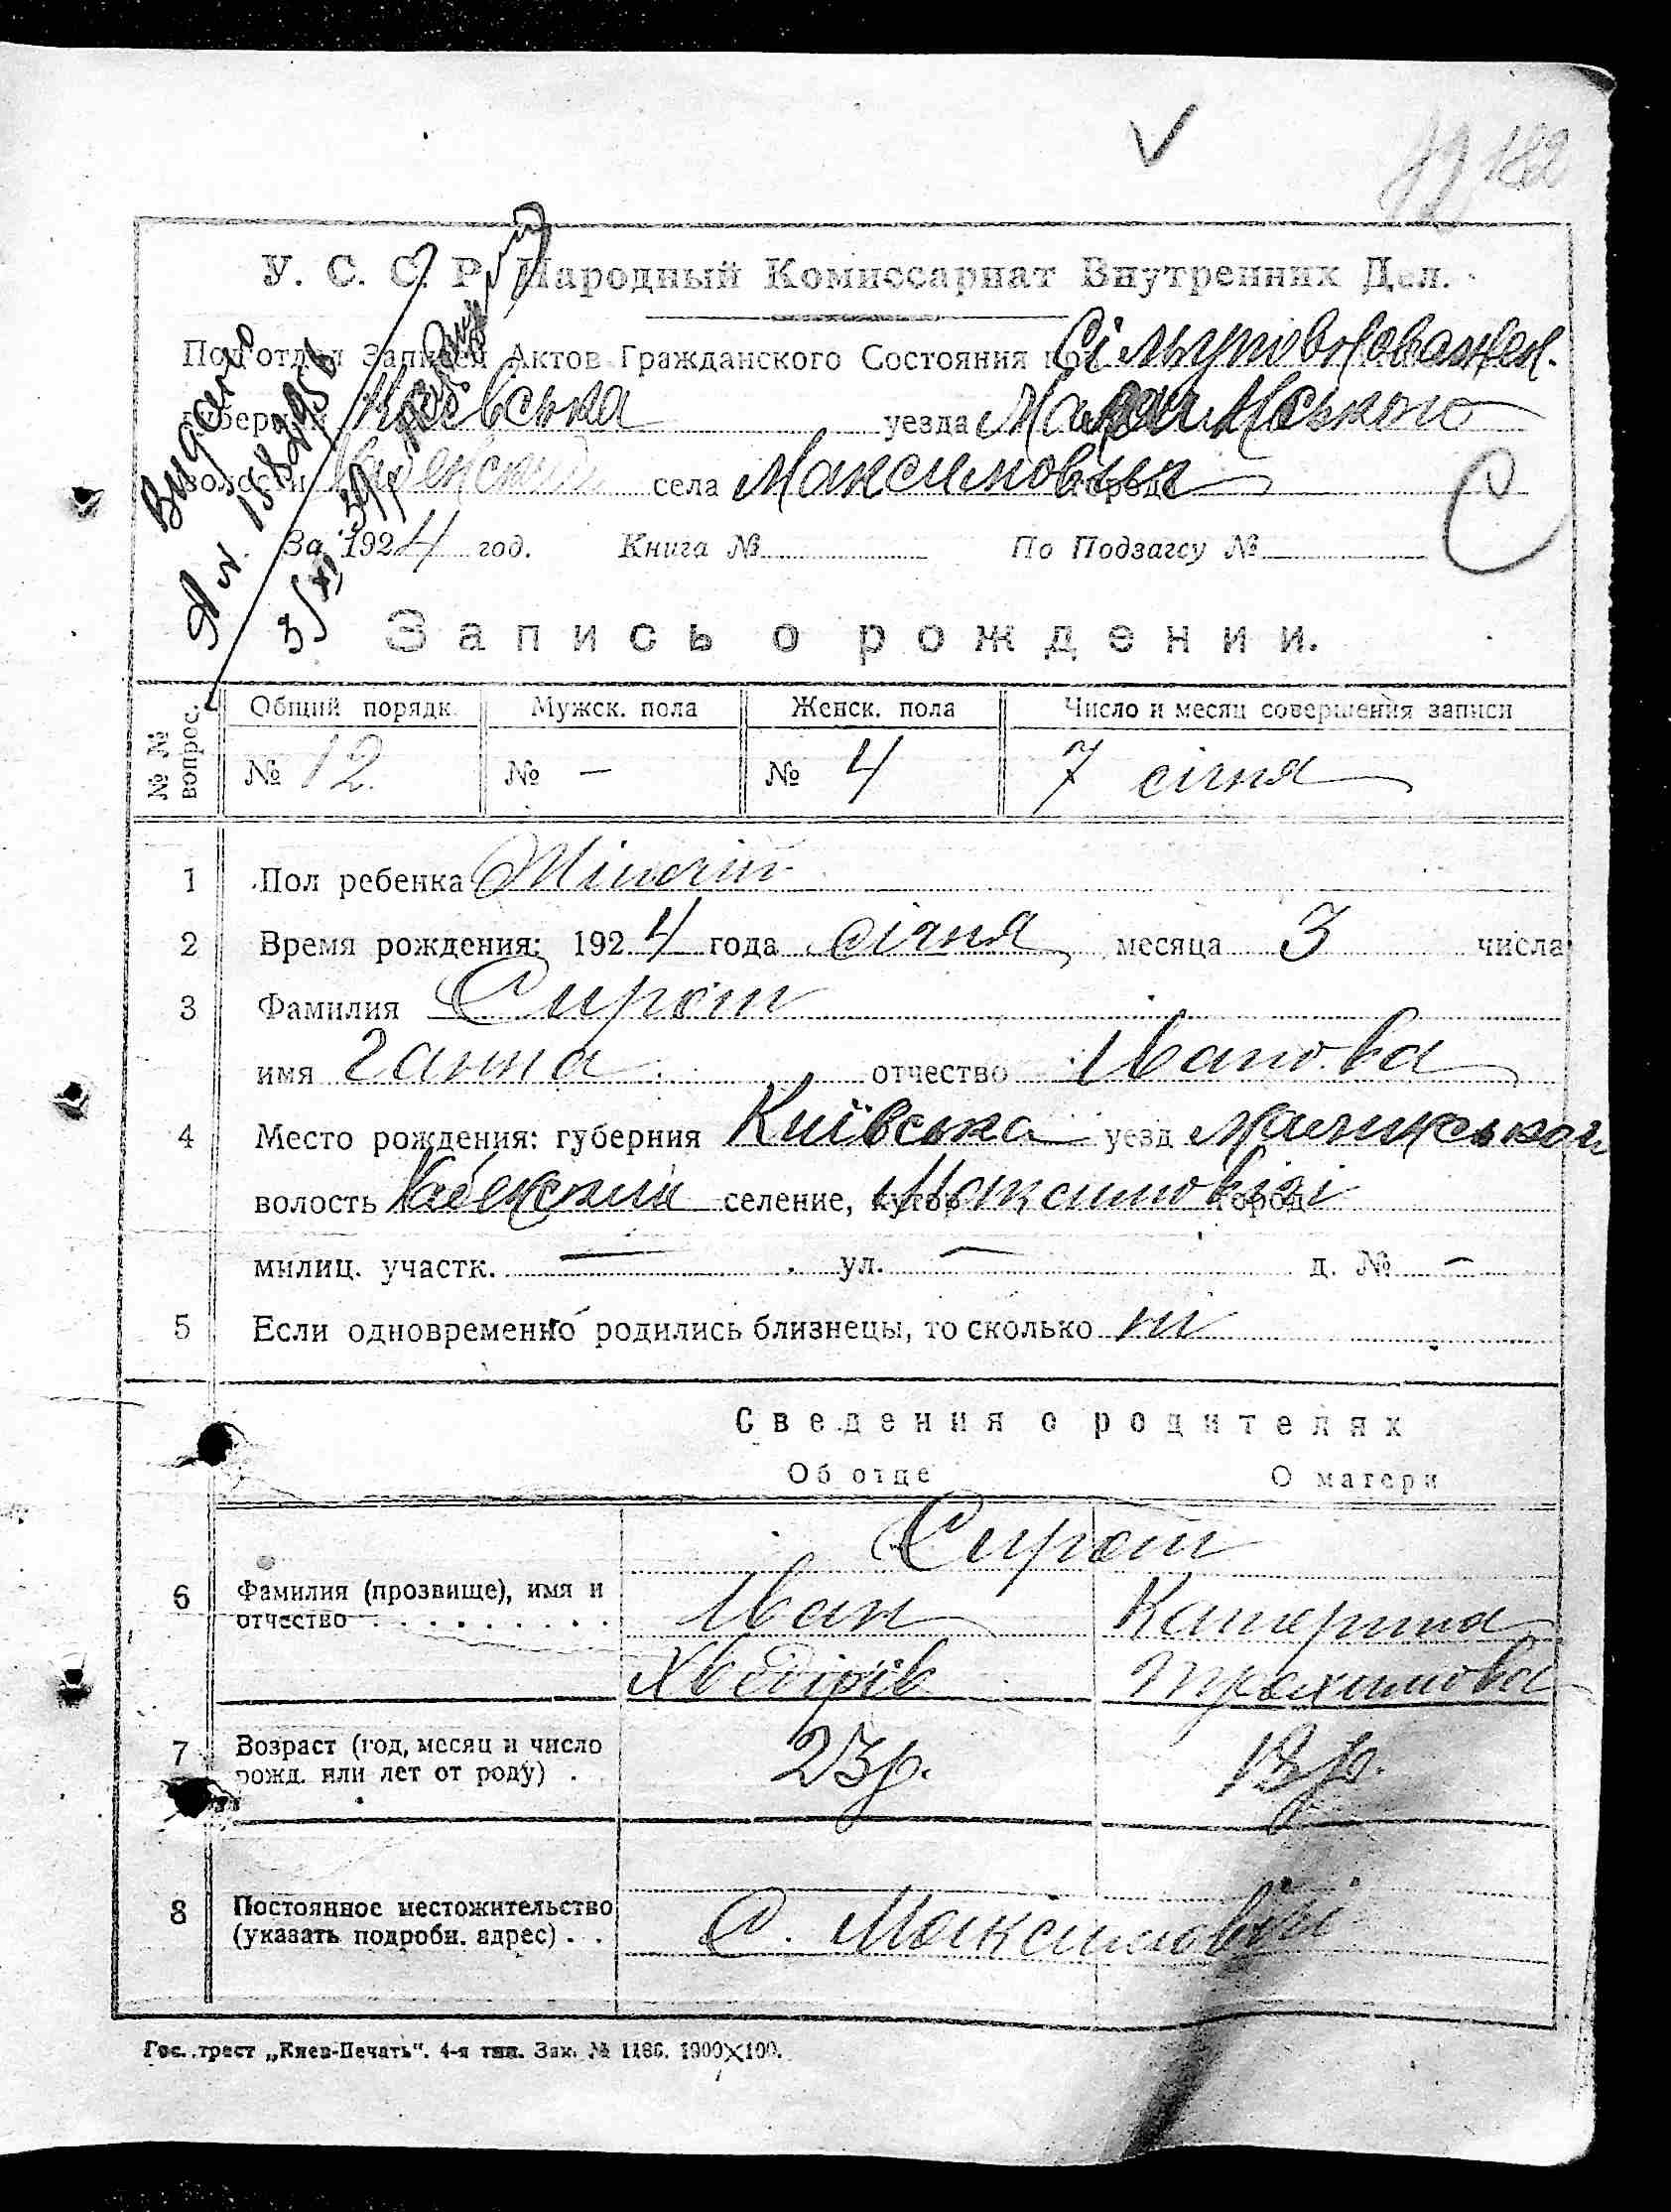 182
У. С. С. Р. Народный Комиссариат Внутренних Дел.
Подотдел Записи Актов Гражданского Состояния при
губернии Київська уезда
волости села Максимовичи города
Видано
За 1924 год. Книга № По Подзагсу №
С
Запись о рождении.
№ № вопрос. Общий порядк. Мужск. пола Женск. пола Число и месяц совершения записи
№ 12. № — № 4 7 січня
1 Пол ребенка Жіночий
2 Время рождения: 1924 года січня месяца 3 числа
3 Фамилия Сирот
имя Ганна отчество Іванова
4 Место рождения: губерния Київська уезд
волость селение, хутор Максимовічі город
милиц. участк. — ул. — д. № —
5 Если одновременно родились близнецы, то сколько ні
Сведения о родителях
Об отце О матери
Сирот
6 Фамилия (прозвище), имя и отчество Іван Катерина
Хведорів Трохимова
7 Возраст (год, месяц и число рожд. или лет от роду) . 23 р. р.
8 Постоянное местожительство (указать подробн. адрес) . . С. Максимовічі
Гос. трест „Киев-Печать“. 4-я тип. Зак. № 1186. 1000×100.